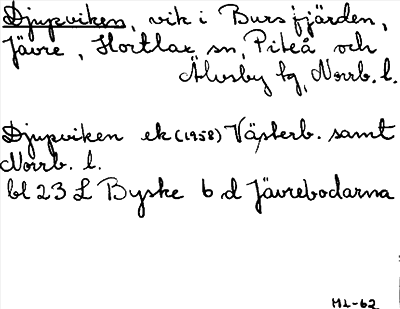 Djupviken, vik i Bursfjärden,
Jävre, Hortlax sn, Piteå och
Älvsby tg, Norrb. l.
Djupviken ek (1958) Västerb. samt
Norrb. l.
bl 23 L Byske 6 d Jävrebodarna
ML-62